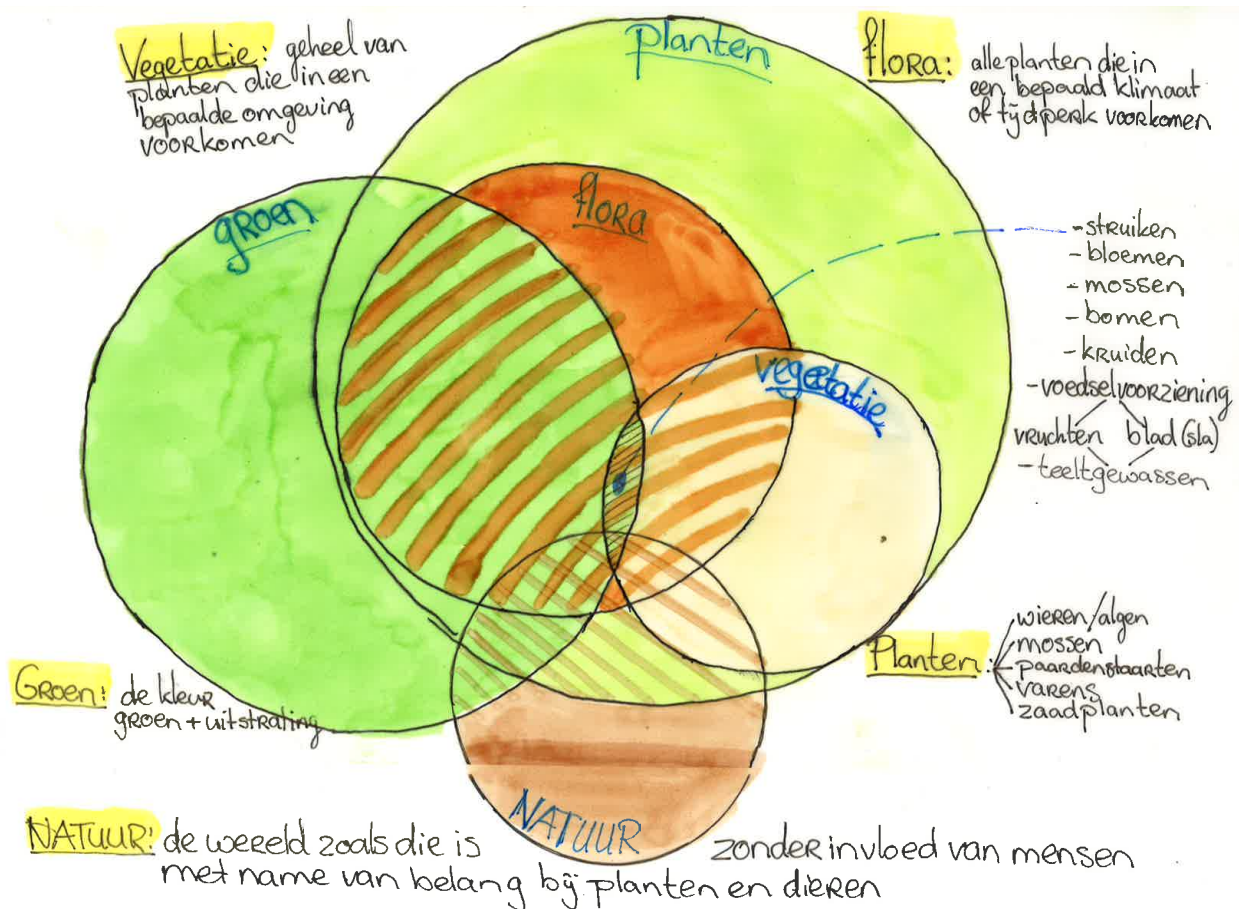 Vegetatie: geheel van
planten die in een
bepaalde omgeving
voorkomen
planten
flora: alle planten die in
een bepaald klimaat
of tijdperk voorkomen
groen
flora
vegetatie
- struiken
- bloemen
- mossen
- bomen
- kruiden
- voedselvoorziening
vruchten blad (sla)
- teeltgewassen
Planten:
wieren/algen
mossen
paardenstaarten
varens
zaadplanten
Groen: de kleur
groen + uitstraling
NATUUR
NATUUR: de wereld zoals die is zonder invloed van mensen
met name van belang bij planten en dieren